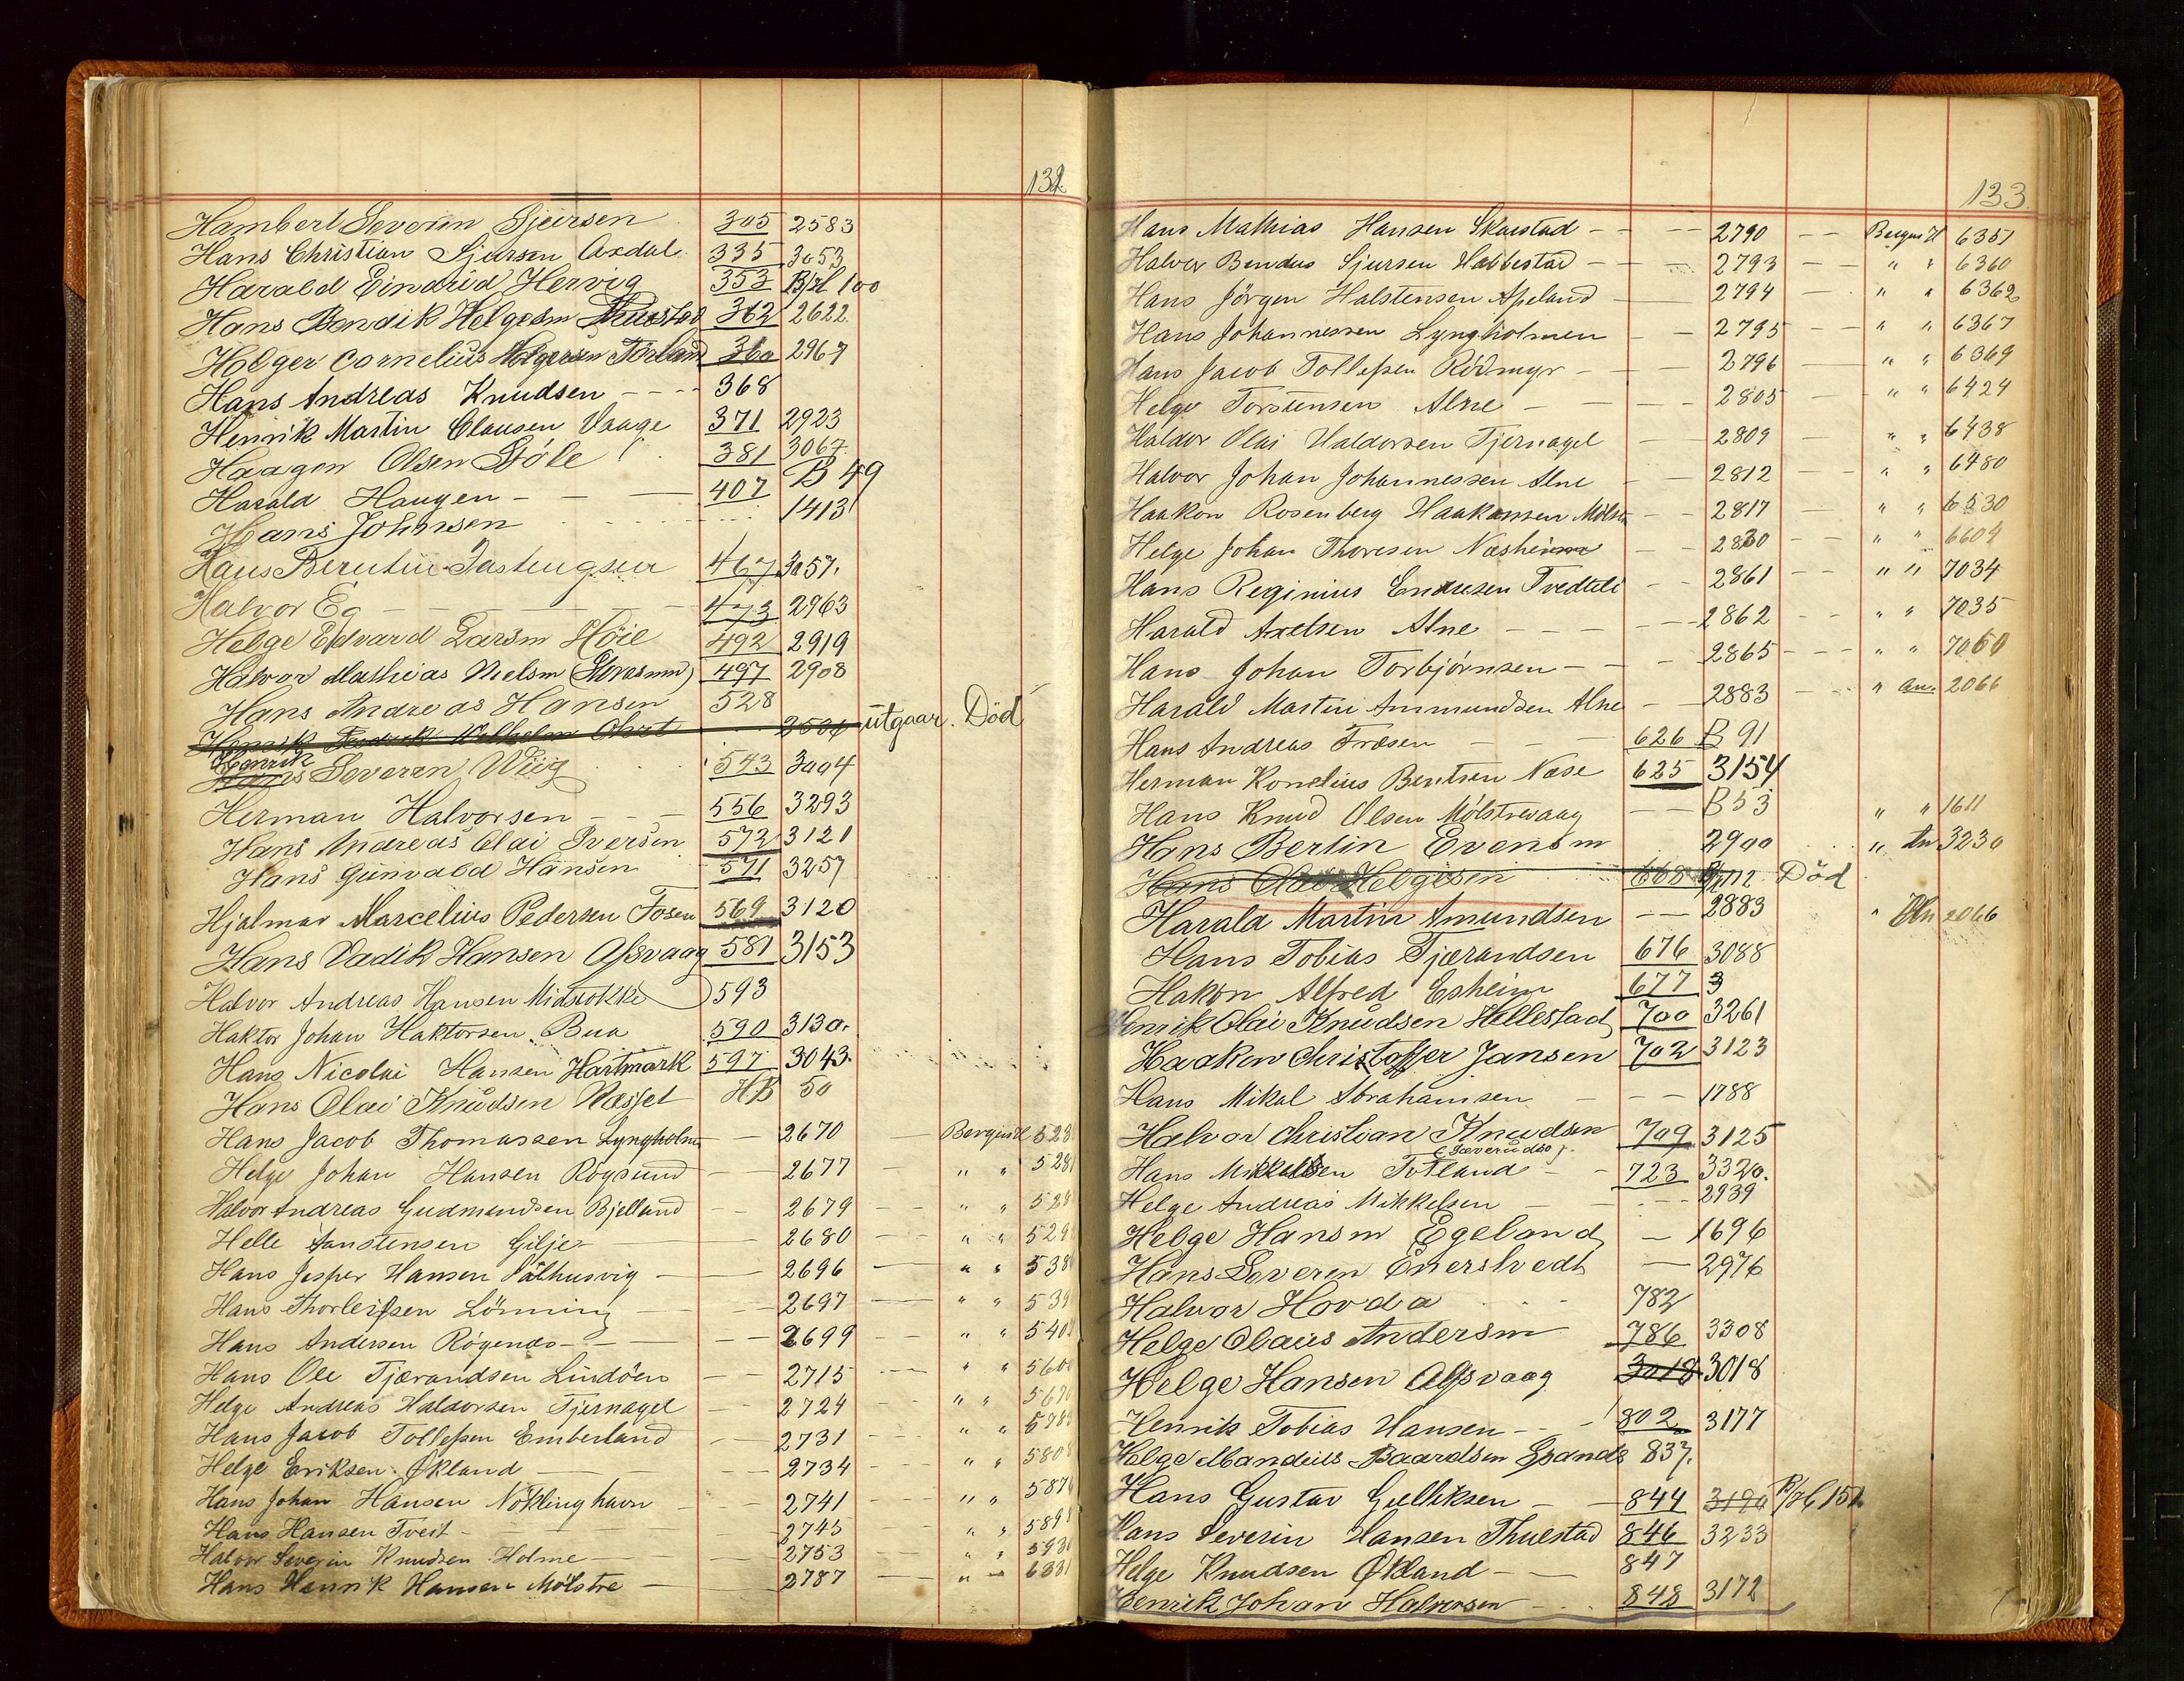 132
Hambert Severin Sjursen 305 2583
Hans Christian Sjursen Axdal 335 3053
Harald Einarid Hervig 353 B/H 100
Hans Bendik Helgesen Thuestad 362 2622
Holger Cornelius Holgersen Førland 360 2967
Hans Andreas Knudsen - - - 368
Henrik Martin Clausen Vaage 371 2923
Haagen Olsen Støle 381 3067
Harald Haugen - — — 407 B 49
Hans Johnsen 1413
Hans Berntin Jastengsen 467 3057.
Halvor Eg — — — 473 2963
Helge Edvard Larsen Høie 492 2919
Halvor Mathias Nielsen (Storasund) 497 2908
Hans Andreas Hansen 528
Henrik Fredrik Vilhelm Ohrt 2504 utgaar. Död
Henrik
Hans Severen Wiig 543 3004
Herman Halvorsen - - - 556 3293
Hans Andreas Olai Iversen 572 3121
Hans Gunvald Hansen 571 3257
Hjalmar Marcelius Pedersen Fosen 569 3120
Hans Vadik Hansen Alsvaag 581 3153
Halvor Andreas Hansen Midtøkke 593
Haktor Johan Haktorsen Bua 590 3130.
Hans Nicolai Hansen Hartmark 597 3043.
Hans Olai Knudsen Næsset HB 50
Hans Jacob Thomassen Lyngholm — 2670 — Bergens H 528
Helge Johan Hansen Røgsund — 2677 - " " 528
Halvor Andreas Gudmundsen Bjelland — 2679 — " " 528
Helle Tanstensen Gilje — 2680 — " " 529
Hans Jesper Hansen Pålhusvig — 2696 — " " 538
Hans Thorleifsen Lönning — 2697 — " " 539
Hans Andersen Røgenæs — 2699 — " " 540
Hans Ole Tjærandsen Lindøen — 2715 — " " 560
Helge Andreas Haldorsen Tjernagel — 2724 — " " 567
Hans Jacob Tollefsen Emberland — 2731 — " " 578
Helge Eriksen Økland — 2734 — " " 580
Hans Johan Hansen Nöklinghavn — 2741 — " " 587
Hans Hansen Tveit - 2745 — " " 589
Halvor Severin Knudsen Holme — 2753 " " 593
Hans Henrik Hansen Mølstre — 2787 — " — 633
133.
Hans Mathias Hansen Skaestad - - - 2790 — Bergens H 6351
Halvor Bendus Sjursen Hattestad — 2793 — " " 6360
Hans Jörgen Halstensen Apeland — 2794 — " " 6362
Hans Johannessen Lyngholmen — 2795 — " " 6367
Hans Jacob Tollefsen Rödmyr — 2796 — " " 6369
Helge Torstensen Alne — 2805 — " " 6424
Haldor Olai Haldorsen Tjernagel — 2809 — " " 6438
Halvor Johan Johannessen Alne — 2812 — " " 6480
Haakon Rosenberg Haakonsen Mølstre — 2817 " " 6530
Helge Johan Thoresen Næsheim — 2830 — " " 6604
Hans Reginius Endresen Tvedteli — 2861 — " " 7034
Harald Axelsen Alne — 2862 - " " 7035
Hans Johan Torbjørnsen — 2865 — " " 7060
Harald Martin Ammundsen Alne — 2883 — " An. 2066
Hans Andreas Fræsen — 626 B 91
Herman Konelius Bentsen Næse 625 3154
Hans Knud Olsen Mølstrevaag — B 53 " " 1611
Hans Bertin Evensen 2900 " An 3230
Hans Olai Helgesen 668 Död
Harald Martin Amundsen — 2883 " An 2066
Hans Tobias Tjærandsen 676 3088
Hakon Alfred Esheim 677 3
Henrik Olai Knudsen Hellestad 700 3261
Haakon Christoffer Jansen 702 3123
Hans Mikal Abrahamsen — 1788
Halvor Christian Knudsen 709 3125
Hans Mikkelsen Totland - - 723 3320.
Helge Andreas Mikkelsen — 2939
Helge Hansen Egeland — 1696
Hans Severen Enerstvedt — 2976
Halvor Hovda 782
Helge Olaus Andersen 786 3308
Helge Hansen Alfsvaag 3018 3018
Henrik Tobias Hansen - - 802 3177
Helge Mandius Baardsen Spande 837.
Hans Gustav Gulliksen — 844 3190 B/H 151
Hans Severin Hansen Thuestad 846 3233
Helge Knudsen Økland - — 847
Henrik Johan Halvorsen — 848 3172